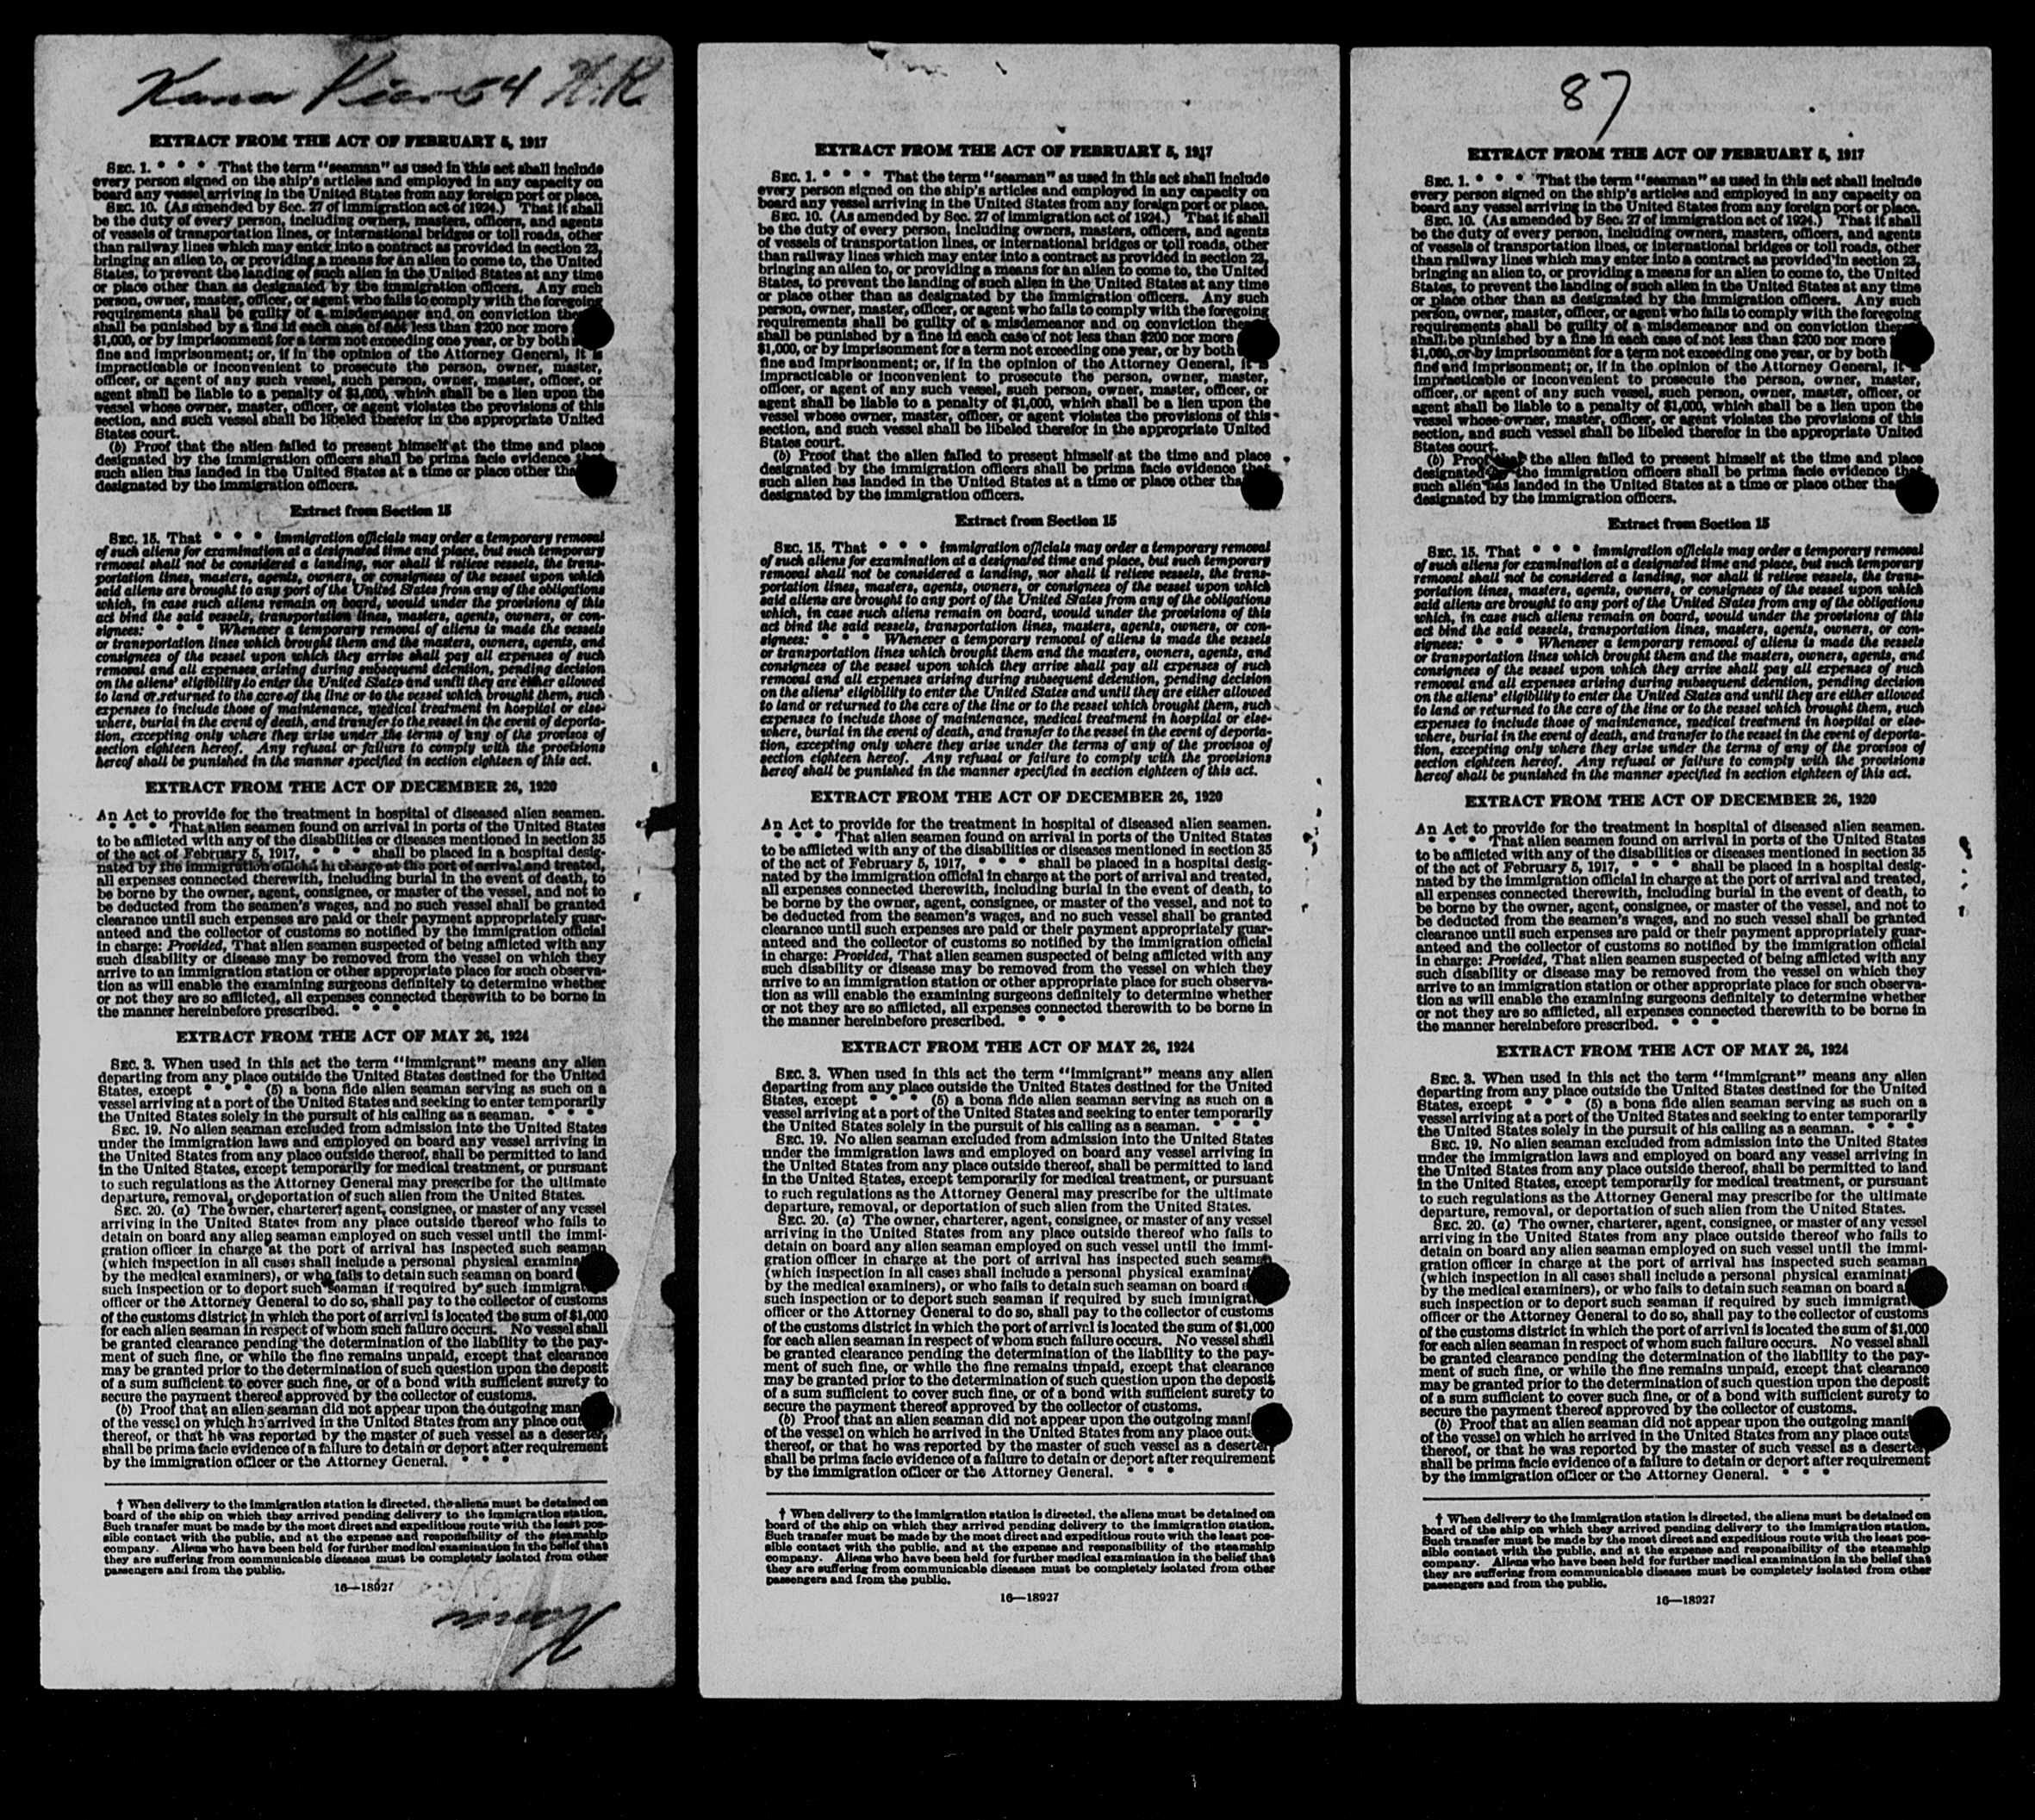 Pier
EXTRACT FROM THE ACT OF FEBRUARY 5, 1917
SEC. 1. * * * That the term "seaman" as used in this act shall include
every person signed on the ship's articles and employed in any capacity on
board any vessel arriving in the United States from any foreign port or place.
SEC. 10. (As amended by Sec. 27 of immigration act of 1924.) That it shall
be the duty of every person, including owners, masters, officers, and agents
of vessels of transportation lines, or international bridges or toll roads, other
than railway lines which may enter into a contract as provided in section 23,
bringing an alien to, or providing a means for an alien to come to, the United
States, to prevent the landing of such alien in the United States at any time
or place other than as designated by the immigration officers. Any such
person, owner, master, officer, or agent who fails to comply with the foregoing
requirements shall be guilty of a misdemeanor and on conviction
shall be punished by a fine in each case of not less than $200 nor more
$1,000, or by imprisonment for a term not exceeding one year, or by both
fine and imprisonment; or, if in the opinion of the Attorney General, it is
impracticable or inconvenient to prosecute the person, owner, master,
officer, or agent of any such vessel, such person, owner, master, officer, or
agent shall be liable to a penalty of $1,000, which shall be a lien upon the
vessel whose owner, master, officer, or agent violates the provisions of this
section, and such vessel shall be libeled therefor in the appropriate United
States court.
(b) Proof that the alien failed to present himself at the time and place
designated by the immigration officers shall be prima facie evidence that
such alien has landed in the United States at a time or place other
designated by the immigration officers.
Extract from Section 15
SEC. 15. That * * * immigration officials may order a temporary removal
of such aliens for examination at a designated time and place, but such temporary
removal shall not be considered a landing, nor shall it relieve vessels, the trans-
portation lines, masters, agents, owners, or consignees of the vessel upon which
said aliens are brought to any port of the United States from any of the obligations
which, in case such aliens remain on board, would under the provisions of this
act bind the said vessels, transportation lines, masters, agents, owners, or con-
signees: * * * Whenever a temporary removal of aliens is made the vessels
or transportation lines which brought them and the masters, owners, agents, and
consignees of the vessel upon which they arrive shall pay all expenses of such
removal and all expenses arising during subsequent detention, pending decision
on the aliens' eligibility to enter the United States and until they are either allowed
to land or returned to the care of the line or to the vessel which brought them, such
expenses to include those of maintenance, medical treatment in hospital or else-
where, burial in the event of death, and transfer to the vessel in the event of deporta-
tion, excepting only where they arise under the terms of any of the provisos of
section eighteen hereof. Any refusal or failure to comply with the provisions
hereof shall be punished in the manner specified in section eighteen of this act.
EXTRACT FROM THE ACT OF DECEMBER 26, 1920
An Act to provide for the treatment in hospital of diseased alien seamen.
* * * That alien seamen found on arrival in ports of the United States
to be afflicted with any of the disabilities or diseases mentioned in section 35
of the act of February 5, 1917, * * * shall be placed in a hospital desig-
nated by the immigration official in charge at the port of arrival and treated,
all expenses connected therewith, including burial in the event of death, to
be borne by the owner, agent, consignee, or master of the vessel, and not to
be deducted from the seamen's wages, and no such vessel shall be granted
clearance until such expenses are paid or their payment appropriately guar-
anteed and the collector of customs so notified by the immigration official
in charge: Provided, That alien seamen suspected of being afflicted with any
such disability or disease may be removed from the vessel on which they
arrive to an immigration station or other appropriate place for such observa-
tion as will enable the examining surgeons definitely to determine whether
or not they are so afflicted, all expenses connected therewith to be borne in
the manner hereinbefore prescribed. * * *
EXTRACT FROM THE ACT OF MAY 26, 1924
SEC. 3. When used in this act the term "immigrant" means any alien
departing from any place outside the United States destined for the United
States, except * * * (5) a bona fide alien seaman serving as such on a
vessel arriving at a port of the United States and seeking to enter temporarily
the United States solely in the pursuit of his calling as a seaman. * * *
SEC. 19. No alien seaman excluded from admission into the United States
under the immigration laws and employed on board any vessel arriving in
the United States from any place outside thereof, shall be permitted to land
in the United States, except temporarily for medical treatment, or pursuant
to such regulations as the Attorney General may prescribe for the ultimate
departure, removal, or deportation of such alien from the United States.
SEC. 20. (a) The owner, charterer, agent, consignee, or master of any vessel
arriving in the United States from any place outside thereof who fails to
detain on board any alien seaman employed on such vessel until the immi-
gration officer in charge at the port of arrival has inspected such seaman
(which inspection in all cases shall include a personal physical
by the medical examiners), or who fails to detain such seaman on board
such inspection or to deport such seaman if required by such
officer or the Attorney General to do so, shall pay to the collector of customs
of the customs district in which the port of arrival is located the sum of $1,000
for each alien seaman in respect of whom such failure occurs. No vessel shall
be granted clearance pending the determination of the liability to the pay-
ment of such fine, or while the fine remains unpaid, except that clearance
may be granted prior to the determination of such question upon the deposit
of a sum sufficient to cover such fine, or of a bond with sufficient surety to
secure the payment thereof approved by the collector of customs.
(b) Proof that an alien seaman did not appear upon the outgoing
of the vessel on which he arrived in the United States from any place
thereof, or that he was reported by the master of such vessel as a deserter,
shall be prima facie evidence of a failure to detain or deport after requirement
by the immigration officer or the Attorney General. * * *
† When delivery to the immigration station is directed, the aliens must be detained on
board of the ship on which they arrived pending delivery to the immigration station.
Such transfer must be made by the most direct and expeditious route with the least pos-
sible contact with the public, and at the expense and responsibility of the steamship
company. Aliens who have been held for further medical examination in the belief that
they are suffering from communicable diseases must be completely isolated from other
passengers and from the public.
16—18927
EXTRACT FROM THE ACT OF FEBRUARY 5, 1917
SEC. 1. * * * That the term "seaman" as used in this act shall include
every person signed on the ship's articles and employed in any capacity on
board any vessel arriving in the United States from any foreign port or place.
SEC. 10. (As amended by Sec. 27 of immigration act of 1924.) That it shall
be the duty of every person, including owners, masters, officers, and agents
of vessels of transportation lines, or international bridges or toll roads, other
than railway lines which may enter into a contract as provided in section 23,
bringing an alien to, or providing a means for an alien to come to, the United
States, to prevent the landing of such alien in the United States at any time
or place other than as designated by the immigration officers. Any such
person, owner, master, officer, or agent who fails to comply with the foregoing
requirements shall be guilty of a misdemeanor and on conviction
shall be punished by a fine in each case of not less than $200 nor more
$1,000, or by imprisonment for a term not exceeding one year, or by both
fine and imprisonment; or, if in the opinion of the Attorney General, it is
impracticable or inconvenient to prosecute the person, owner, master,
officer, or agent of any such vessel, such person, owner, master, officer, or
agent shall be liable to a penalty of $1,000, which shall be a lien upon the
vessel whose owner, master, officer, or agent violates the provisions of this
section, and such vessel shall be libeled therefor in the appropriate United
States court.
(b) Proof that the alien failed to present himself at the time and place
designated by the immigration officers shall be prima facie evidence that
such alien has landed in the United States at a time or place other
designated by the immigration officers.
Extract from Section 15
SEC. 15. That * * * immigration officials may order a temporary removal
of such aliens for examination at a designated time and place, but such temporary
removal shall not be considered a landing, nor shall it relieve vessels, the trans-
portation lines, masters, agents, owners, or consignees of the vessel upon which
said aliens are brought to any port of the United States from any of the obligations
which, in case such aliens remain on board, would under the provisions of this
act bind the said vessels, transportation lines, masters, agents, owners, or con-
signees: * * * Whenever a temporary removal of aliens is made the vessels
or transportation lines which brought them and the masters, owners, agents, and
consignees of the vessel upon which they arrive shall pay all expenses of such
removal and all expenses arising during subsequent detention, pending decision
on the aliens' eligibility to enter the United States and until they are either allowed
to land or returned to the care of the line or to the vessel which brought them, such
expenses to include those of maintenance, medical treatment in hospital or else-
where, burial in the event of death, and transfer to the vessel in the event of deporta-
tion, excepting only where they arise under the terms of any of the provisos of
section eighteen hereof. Any refusal or failure to comply with the provisions
hereof shall be punished in the manner specified in section eighteen of this act.
EXTRACT FROM THE ACT OF DECEMBER 26, 1920
An Act to provide for the treatment in hospital of diseased alien seamen.
* * * That alien seamen found on arrival in ports of the United States
to be afflicted with any of the disabilities or diseases mentioned in section 35
of the act of February 5, 1917, * * * shall be placed in a hospital desig-
nated by the immigration official in charge at the port of arrival and treated,
all expenses connected therewith, including burial in the event of death, to
be borne by the owner, agent, consignee, or master of the vessel, and not to
be deducted from the seamen's wages, and no such vessel shall be granted
clearance until such expenses are paid or their payment appropriately guar-
anteed and the collector of customs so notified by the immigration official
in charge: Provided, That alien seamen suspected of being afflicted with any
such disability or disease may be removed from the vessel on which they
arrive to an immigration station or other appropriate place for such observa-
tion as will enable the examining surgeons definitely to determine whether
or not they are so afflicted, all expenses connected therewith to be borne in
the manner hereinbefore prescribed. * * *
EXTRACT FROM THE ACT OF MAY 26, 1924
SEC. 3. When used in this act the term "immigrant" means any alien
departing from any place outside the United States destined for the United
States, except * * * (5) a bona fide alien seaman serving as such on a
vessel arriving at a port of the United States and seeking to enter temporarily
the United States solely in the pursuit of his calling as a seaman. * * *
SEC. 19. No alien seaman excluded from admission into the United States
under the immigration laws and employed on board any vessel arriving in
the United States from any place outside thereof, shall be permitted to land
in the United States, except temporarily for medical treatment, or pursuant
to such regulations as the Attorney General may prescribe for the ultimate
departure, removal, or deportation of such alien from the United States.
SEC. 20. (a) The owner, charterer, agent, consignee, or master of any vessel
arriving in the United States from any place outside thereof who fails to
detain on board any alien seaman employed on such vessel until the immi-
gration officer in charge at the port of arrival has inspected such seaman
(which inspection in all cases shall include a personal physical
by the medical examiners), or who fails to detain such seaman on board
such inspection or to deport such seaman if required by such
officer or the Attorney General to do so, shall pay to the collector of customs
of the customs district in which the port of arrival is located the sum of $1,000
for each alien seaman in respect of whom such failure occurs. No vessel shall
be granted clearance pending the determination of the liability to the pay-
ment of such fine, or while the fine remains unpaid, except that clearance
may be granted prior to the determination of such question upon the deposit
of a sum sufficient to cover such fine, or of a bond with sufficient surety to
secure the payment thereof approved by the collector of customs.
(b) Proof that an alien seaman did not appear upon the outgoing
of the vessel on which he arrived in the United States from any place
thereof, or that he was reported by the master of such vessel as a deserter,
shall be prima facie evidence of a failure to detain or deport after requirement
by the immigration officer or the Attorney General. * * *
† When delivery to the immigration station is directed, the aliens must be detained on
board of the ship on which they arrived pending delivery to the immigration station.
Such transfer must be made by the most direct and expeditious route with the least pos-
sible contact with the public, and at the expense and responsibility of the steamship
company. Aliens who have been held for further medical examination in the belief that
they are suffering from communicable diseases must be completely isolated from other
passengers and from the public.
16—18927
87
EXTRACT FROM THE ACT OF FEBRUARY 5, 1917
SEC. 1. * * * That the term "seaman" as used in this act shall include
every person signed on the ship's articles and employed in any capacity on
board any vessel arriving in the United States from any foreign port or place.
SEC. 10. (As amended by Sec. 27 of immigration act of 1924.) That it shall
be the duty of every person, including owners, masters, officers, and agents
of vessels of transportation lines, or international bridges or toll roads, other
than railway lines which may enter into a contract as provided in section 23,
bringing an alien to, or providing a means for an alien to come to, the United
States, to prevent the landing of such alien in the United States at any time
or place other than as designated by the immigration officers. Any such
person, owner, master, officer, or agent who fails to comply with the foregoing
requirements shall be guilty of a misdemeanor and on conviction
shall be punished by a fine in each case of not less than $200 nor more
$1,000, or by imprisonment for a term not exceeding one year, or by both
fine and imprisonment; or, if in the opinion of the Attorney General, it is
impracticable or inconvenient to prosecute the person, owner, master,
officer, or agent of any such vessel, such person, owner, master, officer, or
agent shall be liable to a penalty of $1,000, which shall be a lien upon the
vessel whose owner, master, officer, or agent violates the provisions of this
section, and such vessel shall be libeled therefor in the appropriate United
States court.
(b) Proof that the alien failed to present himself at the time and place
designated by the immigration officers shall be prima facie evidence that
such alien has landed in the United States at a time or place other
designated by the immigration officers.
Extract from Section 15
SEC. 15. That * * * immigration officials may order a temporary removal
of such aliens for examination at a designated time and place, but such temporary
removal shall not be considered a landing, nor shall it relieve vessels, the trans-
portation lines, masters, agents, owners, or consignees of the vessel upon which
said aliens are brought to any port of the United States from any of the obligations
which, in case such aliens remain on board, would under the provisions of this
act bind the said vessels, transportation lines, masters, agents, owners, or con-
signees: * * * Whenever a temporary removal of aliens is made the vessels
or transportation lines which brought them and the masters, owners, agents, and
consignees of the vessel upon which they arrive shall pay all expenses of such
removal and all expenses arising during subsequent detention, pending decision
on the aliens' eligibility to enter the United States and until they are either allowed
to land or returned to the care of the line or to the vessel which brought them, such
expenses to include those of maintenance, medical treatment in hospital or else-
where, burial in the event of death, and transfer to the vessel in the event of deporta-
tion, excepting only where they arise under the terms of any of the provisos of
section eighteen hereof. Any refusal or failure to comply with the provisions
hereof shall be punished in the manner specified in section eighteen of this act.
EXTRACT FROM THE ACT OF DECEMBER 26, 1920
An Act to provide for the treatment in hospital of diseased alien seamen.
* * * That alien seamen found on arrival in ports of the United States
to be afflicted with any of the disabilities or diseases mentioned in section 35
of the act of February 5, 1917, * * * shall be placed in a hospital desig-
nated by the immigration official in charge at the port of arrival and treated,
all expenses connected therewith, including burial in the event of death, to
be borne by the owner, agent, consignee, or master of the vessel, and not to
be deducted from the seamen's wages, and no such vessel shall be granted
clearance until such expenses are paid or their payment appropriately guar-
anteed and the collector of customs so notified by the immigration official
in charge: Provided, That alien seamen suspected of being afflicted with any
such disability or disease may be removed from the vessel on which they
arrive to an immigration station or other appropriate place for such observa-
tion as will enable the examining surgeons definitely to determine whether
or not they are so afflicted, all expenses connected therewith to be borne in
the manner hereinbefore prescribed. * * *
EXTRACT FROM THE ACT OF MAY 26, 1924
SEC. 3. When used in this act the term "immigrant" means any alien
departing from any place outside the United States destined for the United
States, except * * * (5) a bona fide alien seaman serving as such on a
vessel arriving at a port of the United States and seeking to enter temporarily
the United States solely in the pursuit of his calling as a seaman. * * *
SEC. 19. No alien seaman excluded from admission into the United States
under the immigration laws and employed on board any vessel arriving in
the United States from any place outside thereof, shall be permitted to land
in the United States, except temporarily for medical treatment, or pursuant
to such regulations as the Attorney General may prescribe for the ultimate
departure, removal, or deportation of such alien from the United States.
SEC. 20. (a) The owner, charterer, agent, consignee, or master of any vessel
arriving in the United States from any place outside thereof who fails to
detain on board any alien seaman employed on such vessel until the immi-
gration officer in charge at the port of arrival has inspected such seaman
(which inspection in all cases shall include a personal physical
by the medical examiners), or who fails to detain such seaman on board
such inspection or to deport such seaman if required by such
officer or the Attorney General to do so, shall pay to the collector of customs
of the customs district in which the port of arrival is located the sum of $1,000
for each alien seaman in respect of whom such failure occurs. No vessel shall
be granted clearance pending the determination of the liability to the pay-
ment of such fine, or while the fine remains unpaid, except that clearance
may be granted prior to the determination of such question upon the deposit
of a sum sufficient to cover such fine, or of a bond with sufficient surety to
secure the payment thereof approved by the collector of customs.
(b) Proof that an alien seaman did not appear upon the outgoing
of the vessel on which he arrived in the United States from any place
thereof, or that he was reported by the master of such vessel as a deserter,
shall be prima facie evidence of a failure to detain or deport after requirement
by the immigration officer or the Attorney General. * * *
† When delivery to the immigration station is directed, the aliens must be detained on
board of the ship on which they arrived pending delivery to the immigration station.
Such transfer must be made by the most direct and expeditious route with the least pos-
sible contact with the public, and at the expense and responsibility of the steamship
company. Aliens who have been held for further medical examination in the belief that
they are suffering from communicable diseases must be completely isolated from other
passengers and from the public.
16—18927